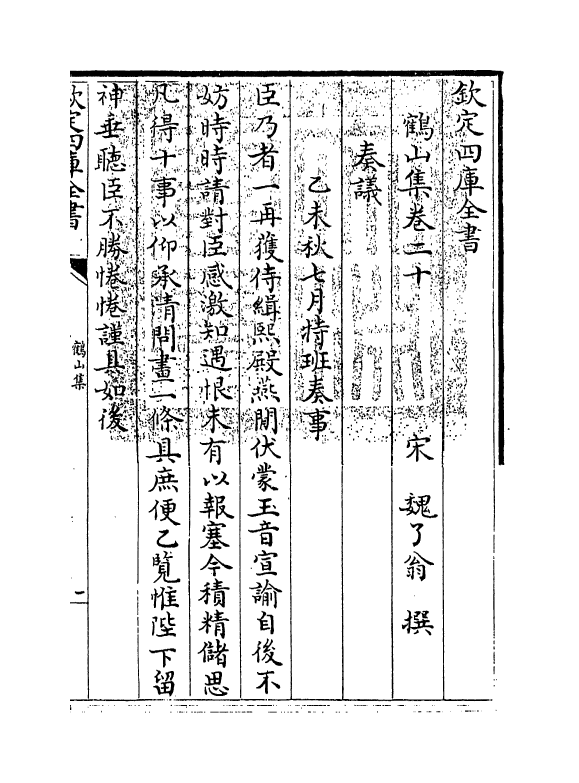 欽定四庫全書
鶴山集卷二十 宋 魏了翁 撰
奏議
乙未秋七月特班奏事
臣乃者一再獲侍緝熙殿燕閒伏蒙玉音宣諭自後不
妨時時請對臣感激知遇恨未有以報塞今積精儲思
凡得十事以仰承清問畫一條具庶便乙覽惟陛下留
神垂聽臣不勝惓惓謹具如後
欽定四庫全書
鶴山集